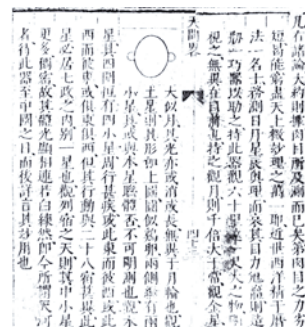 凡右諸論大約則據肉目所及測而已矣第肉目之力
短曷能窮盡天上微妙理之萬一耶近世西洋精于曆
法一名士務測日月星辰奧理而哀其目力尫羸則造
創一巧器以助之持此器觀六十里遠一尺大之物明
視之無異在目前也持之觀月則千倍大于常觀金星
天問略
大似月其光亦或消或長無異于月輪也觀
土星則其形如上圖圓似雞卵兩側繼有兩
小星其或與本星聯體否不可明測也觀木
星其四圍恒有四小星周行甚疾或此東而彼西或此
西而彼東或俱東俱西但其行動與二十八宿甚異此
星必居七政之內別一星也觀列宿之天則其中小星
更多稠密故其體光顯相連若白練然即今所謂天河
者待此器至中國之日而後詳言其妙用也